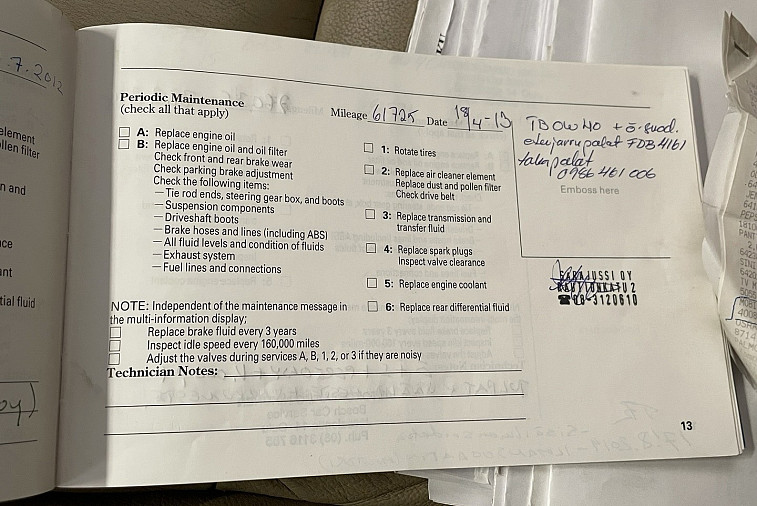 7.2012
element
llen filter
n and
ce
nt
tial fluid
oy)
Periodic Maintenance
(check all that apply)
Mileage 61725 Date 18/4-13
A: Replace engine oil
B: Replace engine oil and oil filter
Check front and rear brake wear
Check parking brake adjustment
Check the following items:
—Tie rod ends, steering gear box, and boots
—Suspension components
—Driveshaft boots
—Brake hoses and lines (including ABS)
—All fluid levels and condition of fluids
—Exhaust system
—Fuel lines and connections
1: Rotate tires
2: Replace air cleaner element
Replace dust and pollen filter
Check drive belt
3: Replace transmission and
transfer fluid
4: Replace spark plugs
Inspect valve clearance
5: Replace engine coolant
6: Replace rear differential fluid
NOTE: Independent of the maintenance message in
the multi-information display;
Replace brake fluid every 3 years
Inspect idle speed every 160,000 miles
Adjust the valves during services A, B, 1, 2, or 3 if they are noisy
Technician Notes:
+ ö.suod.
etujarrupalat FDB 4161
takapalat
0986 461 006
Emboss here
JUSSI OY
☎08-3120610
13